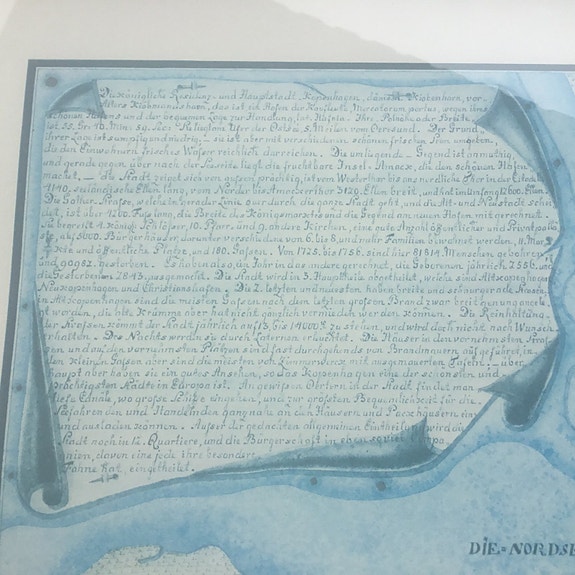 Die Königliche Residenz und Hauptstadt, Kopenhagen, dänisch Kiöbenhavn, vor
Alters Kiöbmandshavn, das ist ein Hafen der Kaufleute, Mercatorum portus, wegen ihres
schönen Hafens und der bequemen Lage zur Handlung, lat. Hafnia. Ihre Polhöhe oder Breite
ist 55. Gr. 40. Min. 59. Sec. Ufer der Ostsee, 5. Meilen vom Oeresund. Der Grund
ihrer Lage ist sumpfig und niedrig, so ist aber mit verschiedenen schönen frischen umgeben,
die den Einwohnern frisches Wasser reichlich darreichen. Die umliegende Gegend ist anmuthig,
und gerade gegen über nach der Seeseite liegt die fruchtbare Insel Amack, die den schönen Hafen
machet, — die Stadt zeiget sich von außen prächtig, ist vom Westerthor bis ins nordliche Thor in der Citadelle
4140. seeländische Ellen lang, vom Norder bis Amackerthor 3120. Ellen breit, und hat im Umfang 12600. Ellen.
Die Gother Straße, welche in gerader Linie quer durch die ganze Stadt geht, und die Alt- und Neustadt schei-
det, ist über 4200. Fuß lang, die Breite des Königsmarktes und die Gegend am neuen Hafen mit gerechnet.
Sie begreift 4. König. Schlößer, 10. Pfarr- und 9. andere Kirchen, eine gute Anzahl öffentlicher und Privatpalla-
ste, auf 5600. Bürgerhäuser darunter verschiedene von 6. bis 8. und mehr Familien bewohnet werden, 11. Mar-
kte und öffentliche Plätze, und 186. Gaßen. Von 1725. bis 1756. sind hier 81814 Menschen gebohren,
und 90982. gestorben. Es haben also, ein Jahr in das andere gerechnet, die Geborenen jährlich 2556. und
die Gestorbenen 2843. ausgemacht. Die Stadt wird in 3. Haupttheile abgetheilet, welche sind Altkopenhagen
Neukopenhagen und Christianshafen. Die 2. letzten und neuesten haben breite und schnurgerade Straßen,
in Altkopenhagen sind die meisten Gaßen nach dem letzten großen Brand zwar breit genug angele-
gt worden, die alte Krümmen aber hat nicht gänzlich vermieden werden können. Die Reinhaltung
der Straßen kommt der Stadt jährlich auf 13. bis 14000 zu stehen, und wird doch nicht nach Wunsch
erhalten. Des Nachts werden sie durch Laternen erleuchtet. Die Häuser in den vornehmsten Straß-
en und auf den vornehmsten Plätzen sind fast durchgehends von Brandmauern aufgeführet, in
den kleinen Gaßen aber sind die meisten von Zimmerwerk mit ausgemauerten Tafeln, — über
haupt aber haben sie ein gutes Ansehen, so das Kopenhagen eine der schönsten und
prächtigsten Städte in Europa ist. An gewißen Oertern in der Stadt findet man
tiefe Canäle, wo große Schiffe eingehen, und zur größten Bequemlichkeit für die
Seefahrenden und Handelnden gang nah an den Häusern und Packhäusern ein
und ausladen können. Außer der gedachten allgemeinen Eintheilung wird die
Stadt noch in 12. Quartiere, und die Bürgerschaft in eben so viel
nien, davon eine jede ihre besondere
Fahne hat eingetheilet.
DIE NORDS